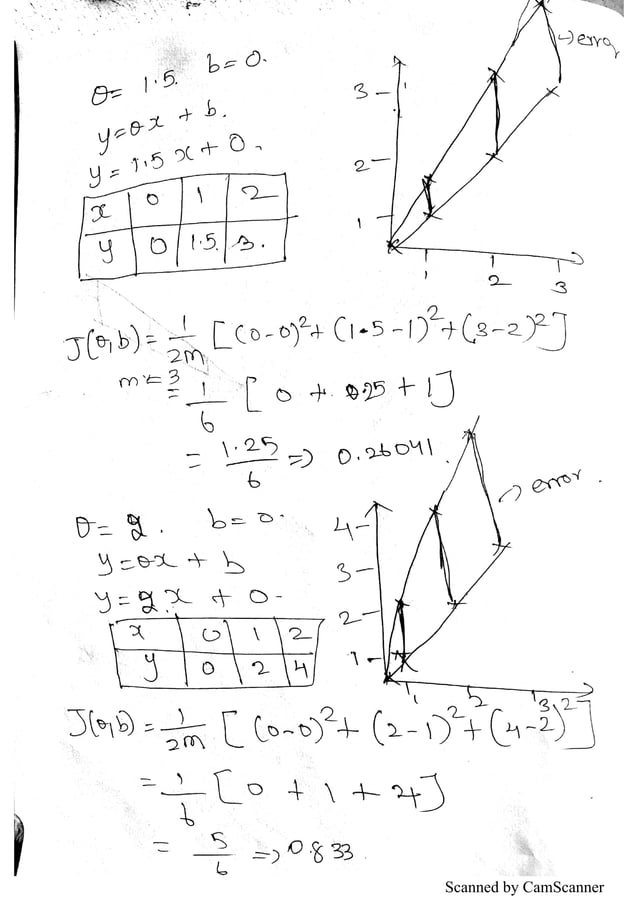 θ= 1.5. b=0.
y=θx + b.
y= 1.5x+0.
x 0 1 2
y 0 1.5 3.
→ error
3
2
1
1 2 3
J(θ,b)= 1/2m [(0-0)²+(1.5-1)²+(3-2)²]
m=3
= 1/6 [0 + 0.25 + 1]
= 1.25/6 => 0.26041
θ= 2. b=0.
y=θx + b
y=2.x + 0-
x 0 1 2
y 0 2 4
error.
4
3
2
1
1 2 3
J(θ,b) = 1/2m [(0-0)²+(2-1)²+(4-2)²]
= 1/6 [0 + 1 + 4]
= 5/6 => 0.833
Scanned by CamScanner